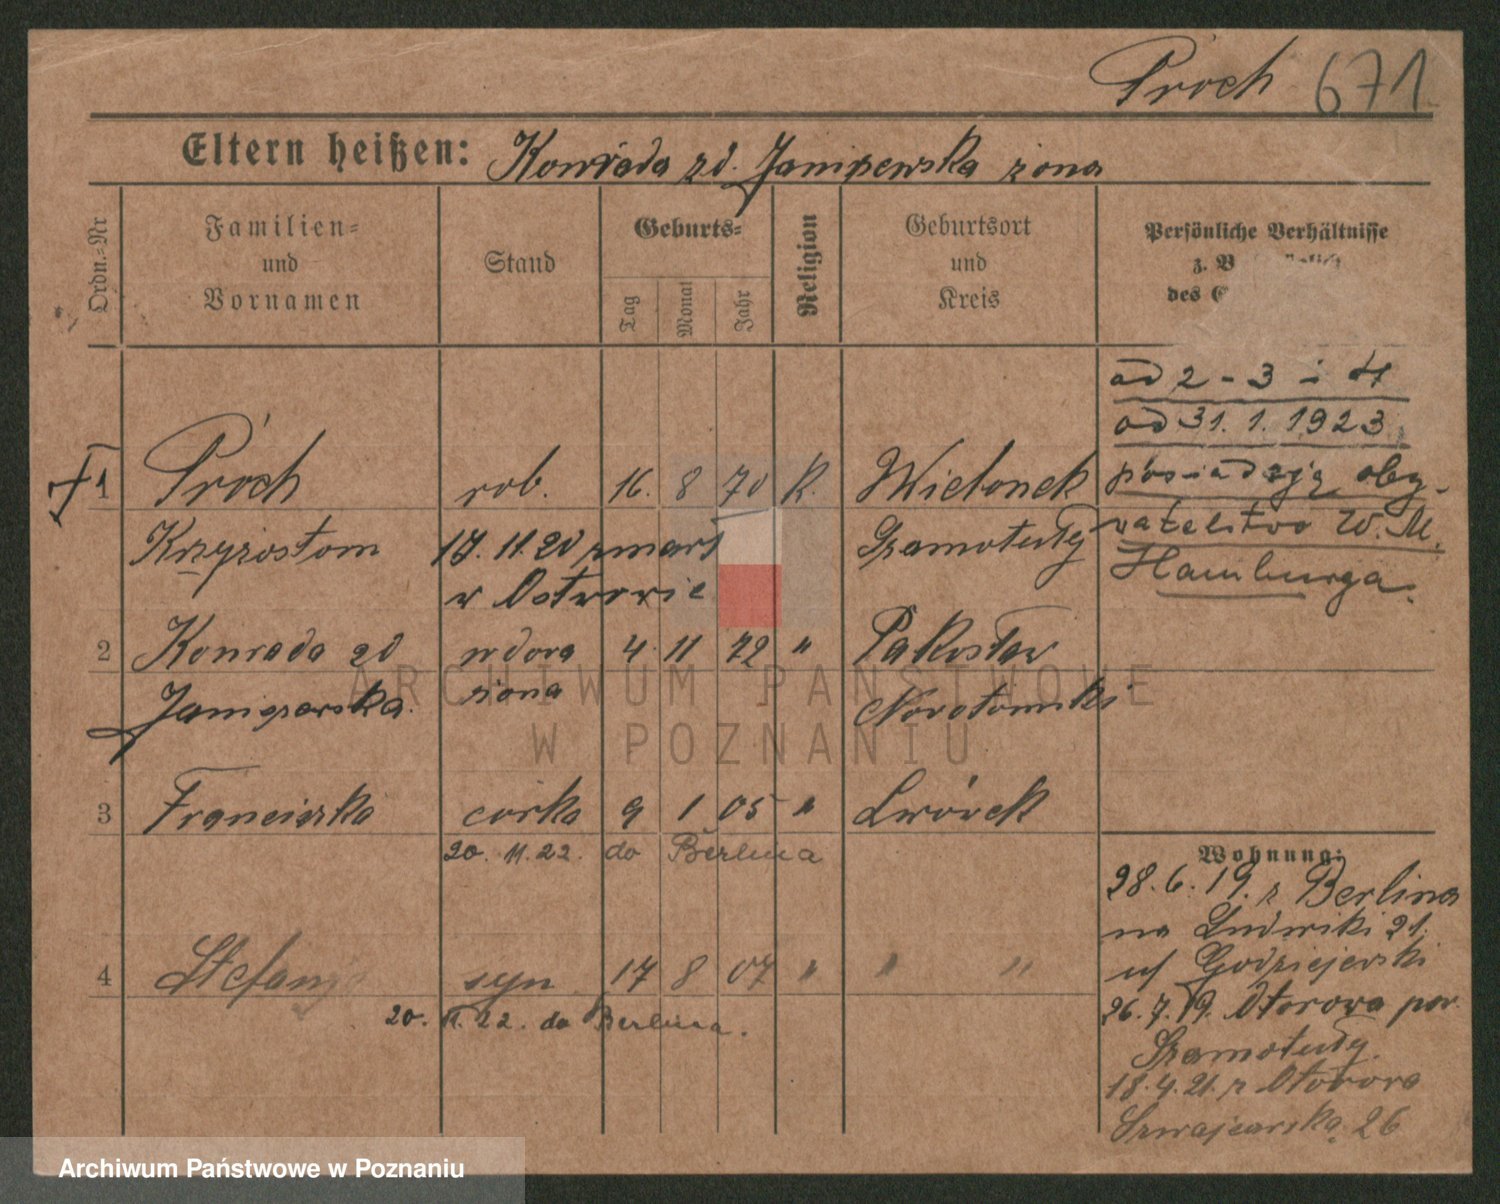 Próch 671
Eltern heißen: Konrada zd. Janiszewska żona
Ordn.-Nr
Familien-
und
Vornamen
Stand
Geburts-
Tag
Monat
Jahr
Religion
Geburtsort
und
Kreis
Persönliche Verhältnisse
z.
des
ad 2 - 3 i 4
od 31. 1. 1923
posiadają oby-
watelstwo W. M.
Hamburga.
1 Próch rob. 16. 8 70 K. Wielonek
Krzyzostom 17. 11. 20 zmarł Szamotuły
w Ostrowie
2 Konrada zd wdowa 4 11 72 " Pakosław
Janiszewska. żona Nowotomski
3 Franciszka córka 9 1 05 " Lwówek
20. 11. 22. do Berlina
4 Stefan syn 17 8 07 " " "
20. 11. 22. do Berlina.
Wohnung:
28. 6. 19. z Berlina
na Ludwiki 21.
u/ Godziejewski
26. 7. 19. Otorowa pow.
Szamotuły.
18. 4. 21. z Otorowa
Szwajcarska 26
ARCHIWUM PAŃSTWOWE
W POZNANIU
Archiwum Państwowe w Poznaniu